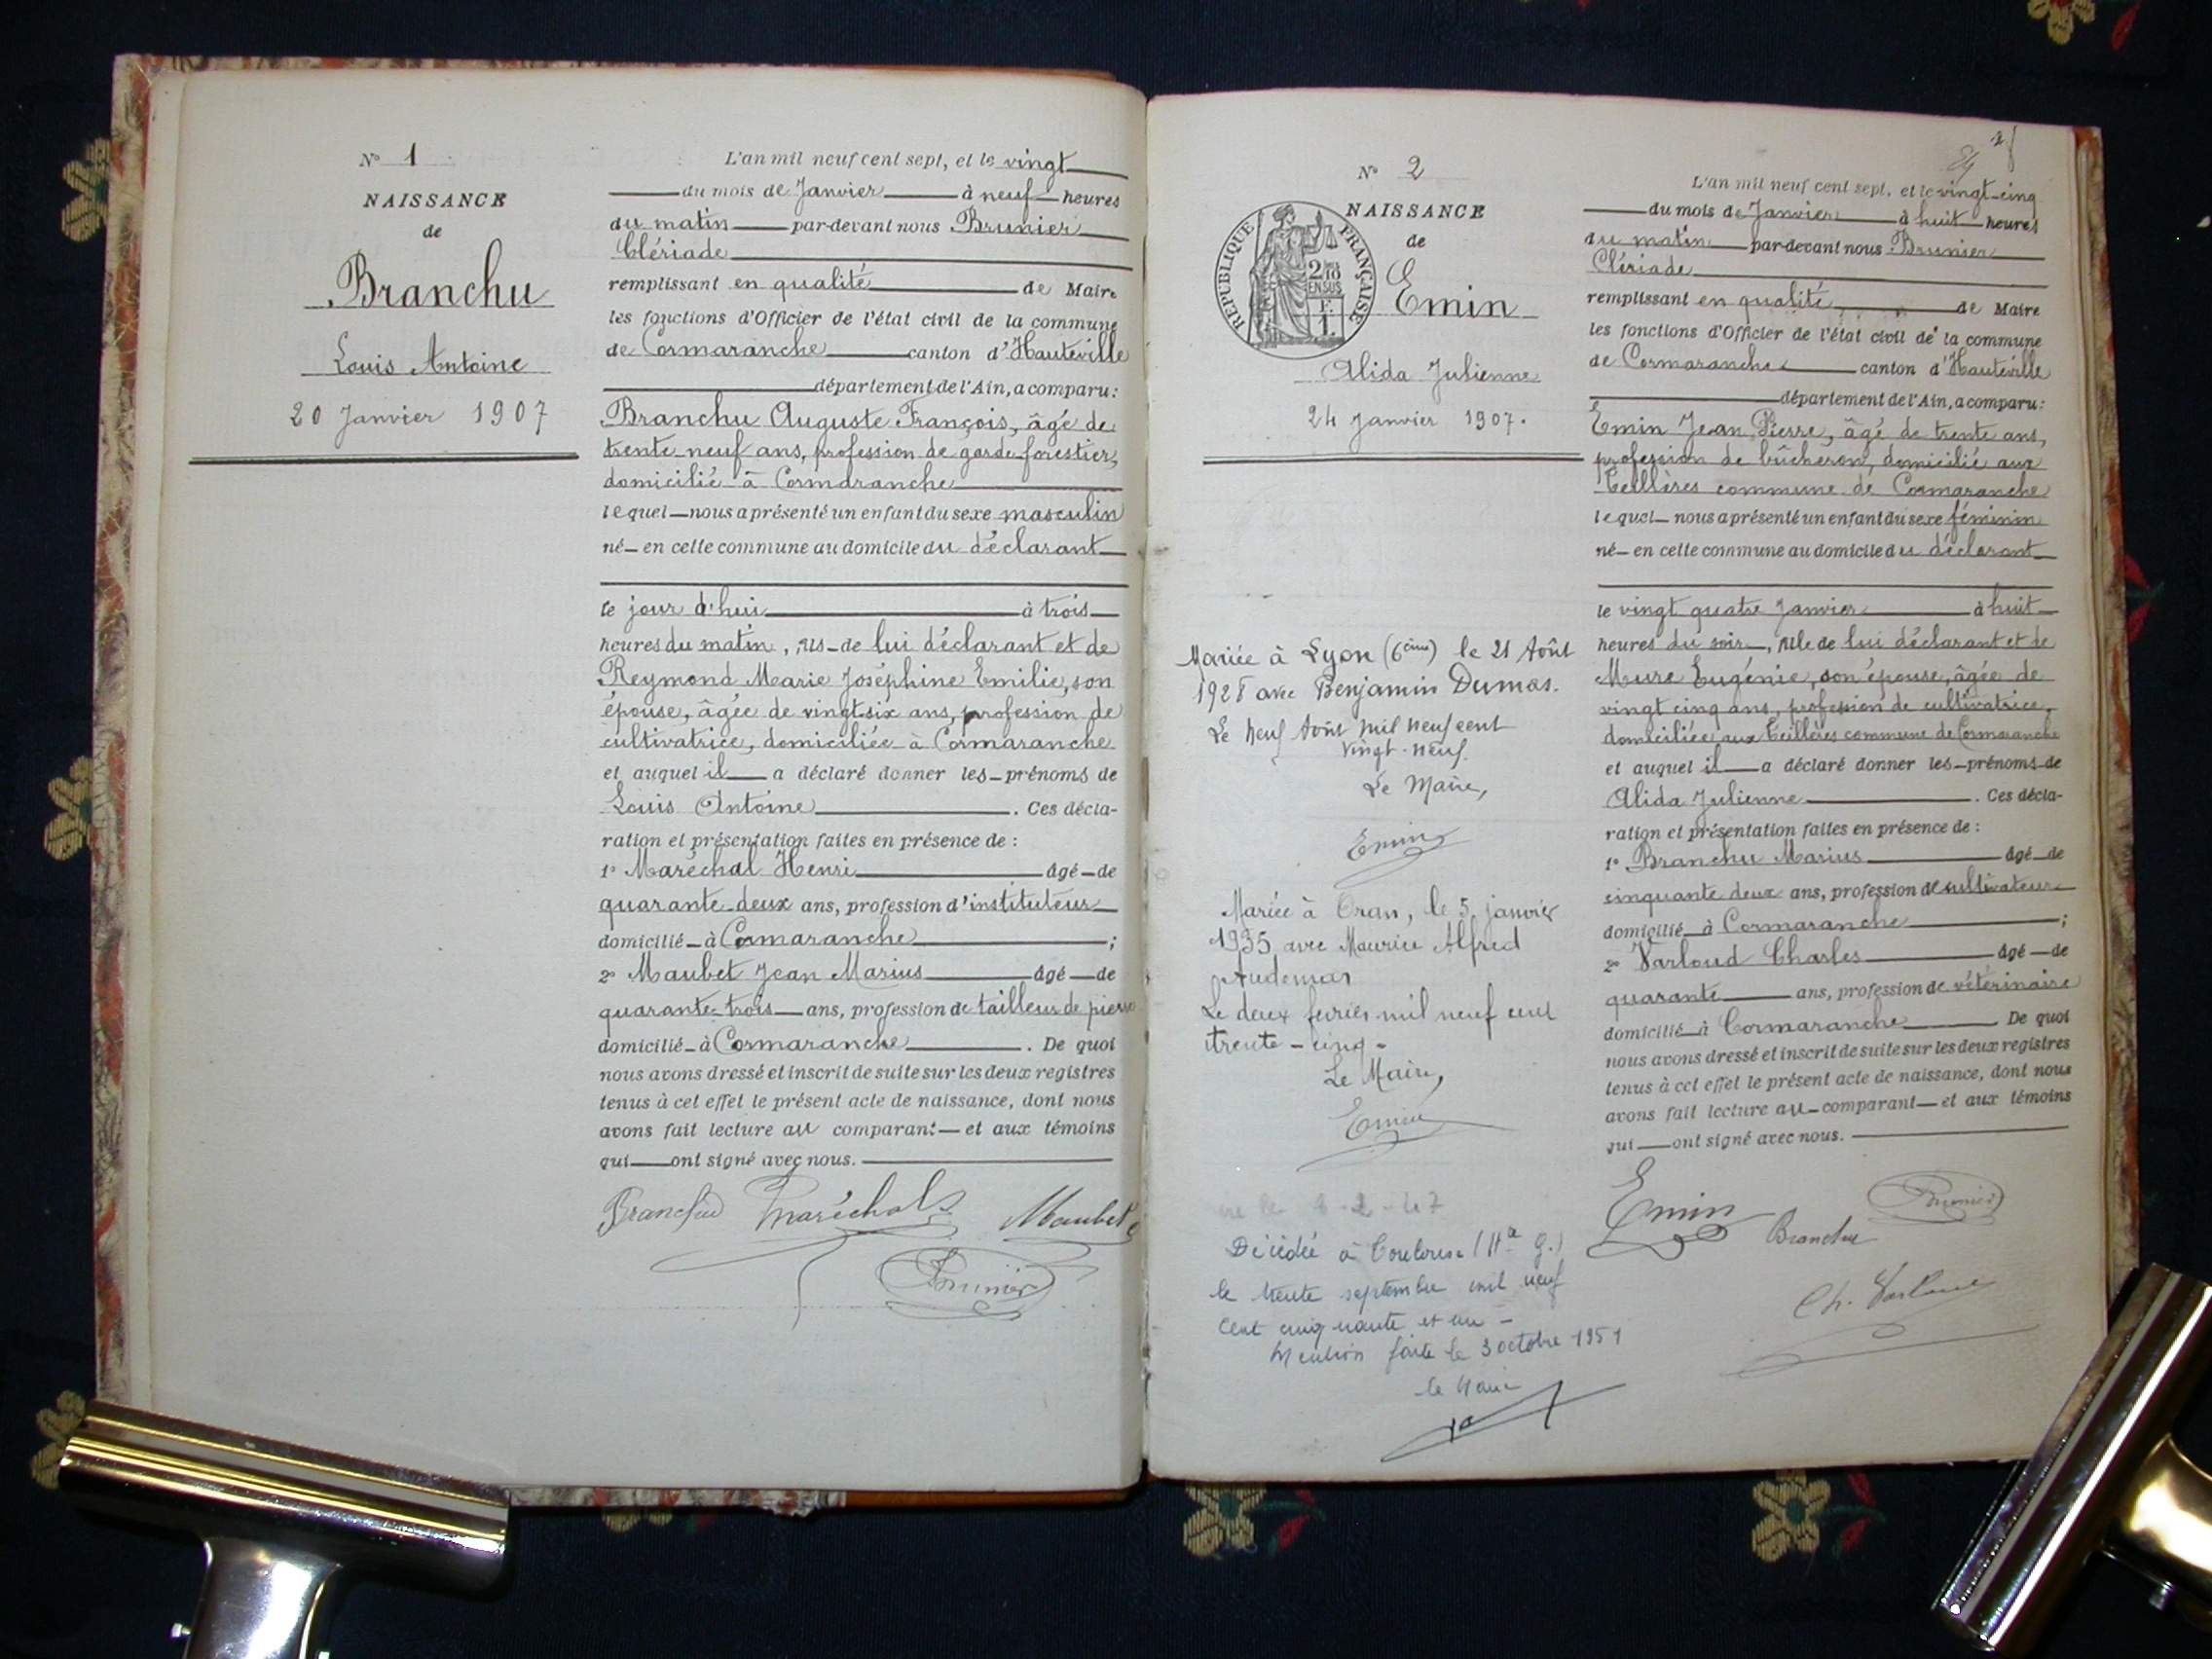 N° 1
NAISSANCE
de
Branchu
Louis Antoine
20 Janvier 1907
L'an mil neuf cent sept, et le vingt
du mois de Janvier à neuf heures
du matin par-devant nous Brunier
Clériade
remplissant en qualité de Maire
les fonctions d'Officier de l'état civil de la commune
de Cormaranche canton d'Hauteville
département de l'Ain, a comparu:
Branchu Auguste François, âgé de
trente neuf ans, profession de garde forestier,
domicilié à Cormaranche
lequel nous a présenté un enfant du sexe masculin
né en cette commune au domicile du déclarant
le jour d'hui à trois
heures du matin, fils de lui déclarant et de
Reymond Marie Joséphine Emilie, son
épouse, âgée de vingt-six ans, profession de
cultivatrice, domiciliée à Cormaranche
et auquel il a déclaré donner les prénoms de
Louis Antoine. Ces décla-
ration et présentation faites en présence de:
1° Maréchal Henri âgé de
quarante deux ans, profession d'instituteur
domicilié à Cormaranche;
2° Maubet Jean Marius âgé de
quarante-trois ans, profession de tailleur de pierre
domicilié à Cormaranche. De quoi
nous avons dressé et inscrit de suite sur les deux registres
tenus à cet effet le présent acte de naissance, dont nous
avons fait lecture au comparant et aux témoins
qui ont signé avec nous.
Branchu Maréchal Maubet
Brunier
N° 2
NAISSANCE
de
RÉPUBLIQUE FRANÇAISE
Emin
Alida Julienne
24 Janvier 1907.
Mariée à Lyon (6ème) le 21 Août
1928 avec Benjamin Dumas.
Le neuf Août mil neuf cent
vingt-neuf.
Le Maire,
Emin
Mariée à Oran, le 5 janvier
1935 avec Maurice Alfred
Audemar
Le deux février mil neuf cent
trente-cinq-
Le Maire,
Emin
Décédée à Toulouse (Hte G.)
le trente septembre mil neuf
cent cinquante et un -
Mention faite le 3 octobre 1951
le Maire
L'an mil neuf cent sept, et le vingt-cinq
du mois de Janvier à huit heures
du matin par-devant nous Brunier
Clériade
remplissant en qualité de Maire
les fonctions d'Officier de l'état civil de la commune
de Cormaranche canton d'Hauteville
département de l'Ain, a comparu:
Emin Jean Pierre, âgé de trente ans,
profession de bûcheron, domicilié aux
Teillères commune de Cormaranche
lequel nous a présenté un enfant du sexe féminin
né en cette commune au domicile du déclarant
le vingt quatre Janvier à huit
heures du soir, fille de lui déclarant et de
Mure Eugénie, son épouse, âgée de
vingt cinq ans, profession de cultivatrice,
domiciliée aux Teillères commune de Cormaranche
et auquel il a déclaré donner les prénoms de
Alida Julienne. Ces décla-
ration et présentation faites en présence de:
1° Branchu Marius âgé de
cinquante deux ans, profession de cultivateur
domicilié à Cormaranche;
2° Varloud Charles âgé de
quarante ans, profession de vétérinaire
domicilié à Cormaranche De quoi
nous avons dressé et inscrit de suite sur les deux registres
tenus à cet effet le présent acte de naissance, dont nous
avons fait lecture au comparant et aux témoins
qui ont signé avec nous.
Emin Branchu Brunier
Ch. Varloud